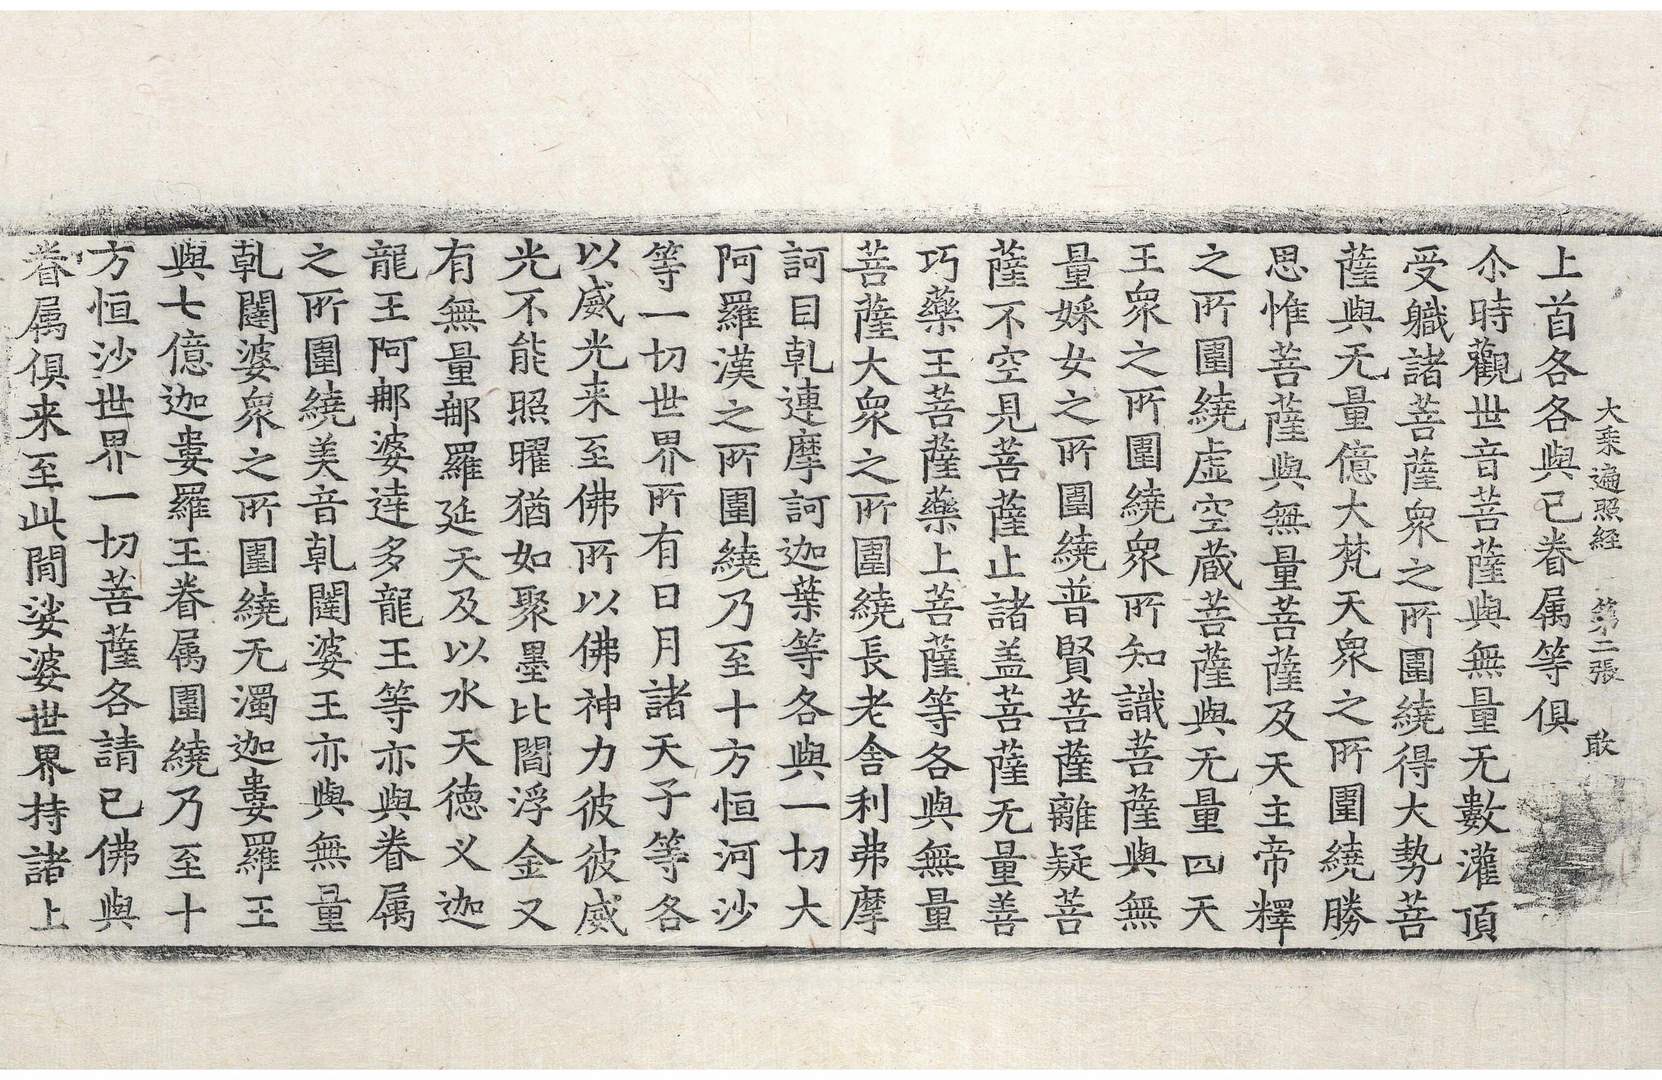 大乘遍照経 第二張 敢
上首各各與已眷属等俱
尒時觀世音菩薩與無量无數灌頂
受軄諸菩薩衆之所圍繞得大勢菩
薩與无量億大梵天衆之所圍繞勝
思惟菩薩與無量菩薩及天主帝釋
之所圍繞虚空蔵菩薩與无量四天
王衆之所圍繞衆所知識菩薩與無
量婇女之所圍繞普賢菩薩離疑菩
薩不空見菩薩止諸盖菩薩无量善
巧藥王菩薩藥上菩薩等各與無量
菩薩大衆之所圍繞長老舍利弗摩
訶目乹連摩訶迦葉等各與一切大
阿羅漢之所圍繞乃至十方恒河沙
等一切世界所有日月諸天子等各
以威光来至佛所以佛神力彼彼威
光不能照曜猶如聚墨比閻浮金又
有無量郍羅延天及以水天德义迦
龍王阿郍婆達多龍王等亦與眷属
之所圍繞美音乹闥婆王亦與無量
乹闥婆衆之所圍繞无濁迦婁羅王
與七億迦婁羅王眷属圍繞乃至十
方恒沙世界一切菩薩各請已佛與
眷属俱来至此閒娑婆世界持諸上